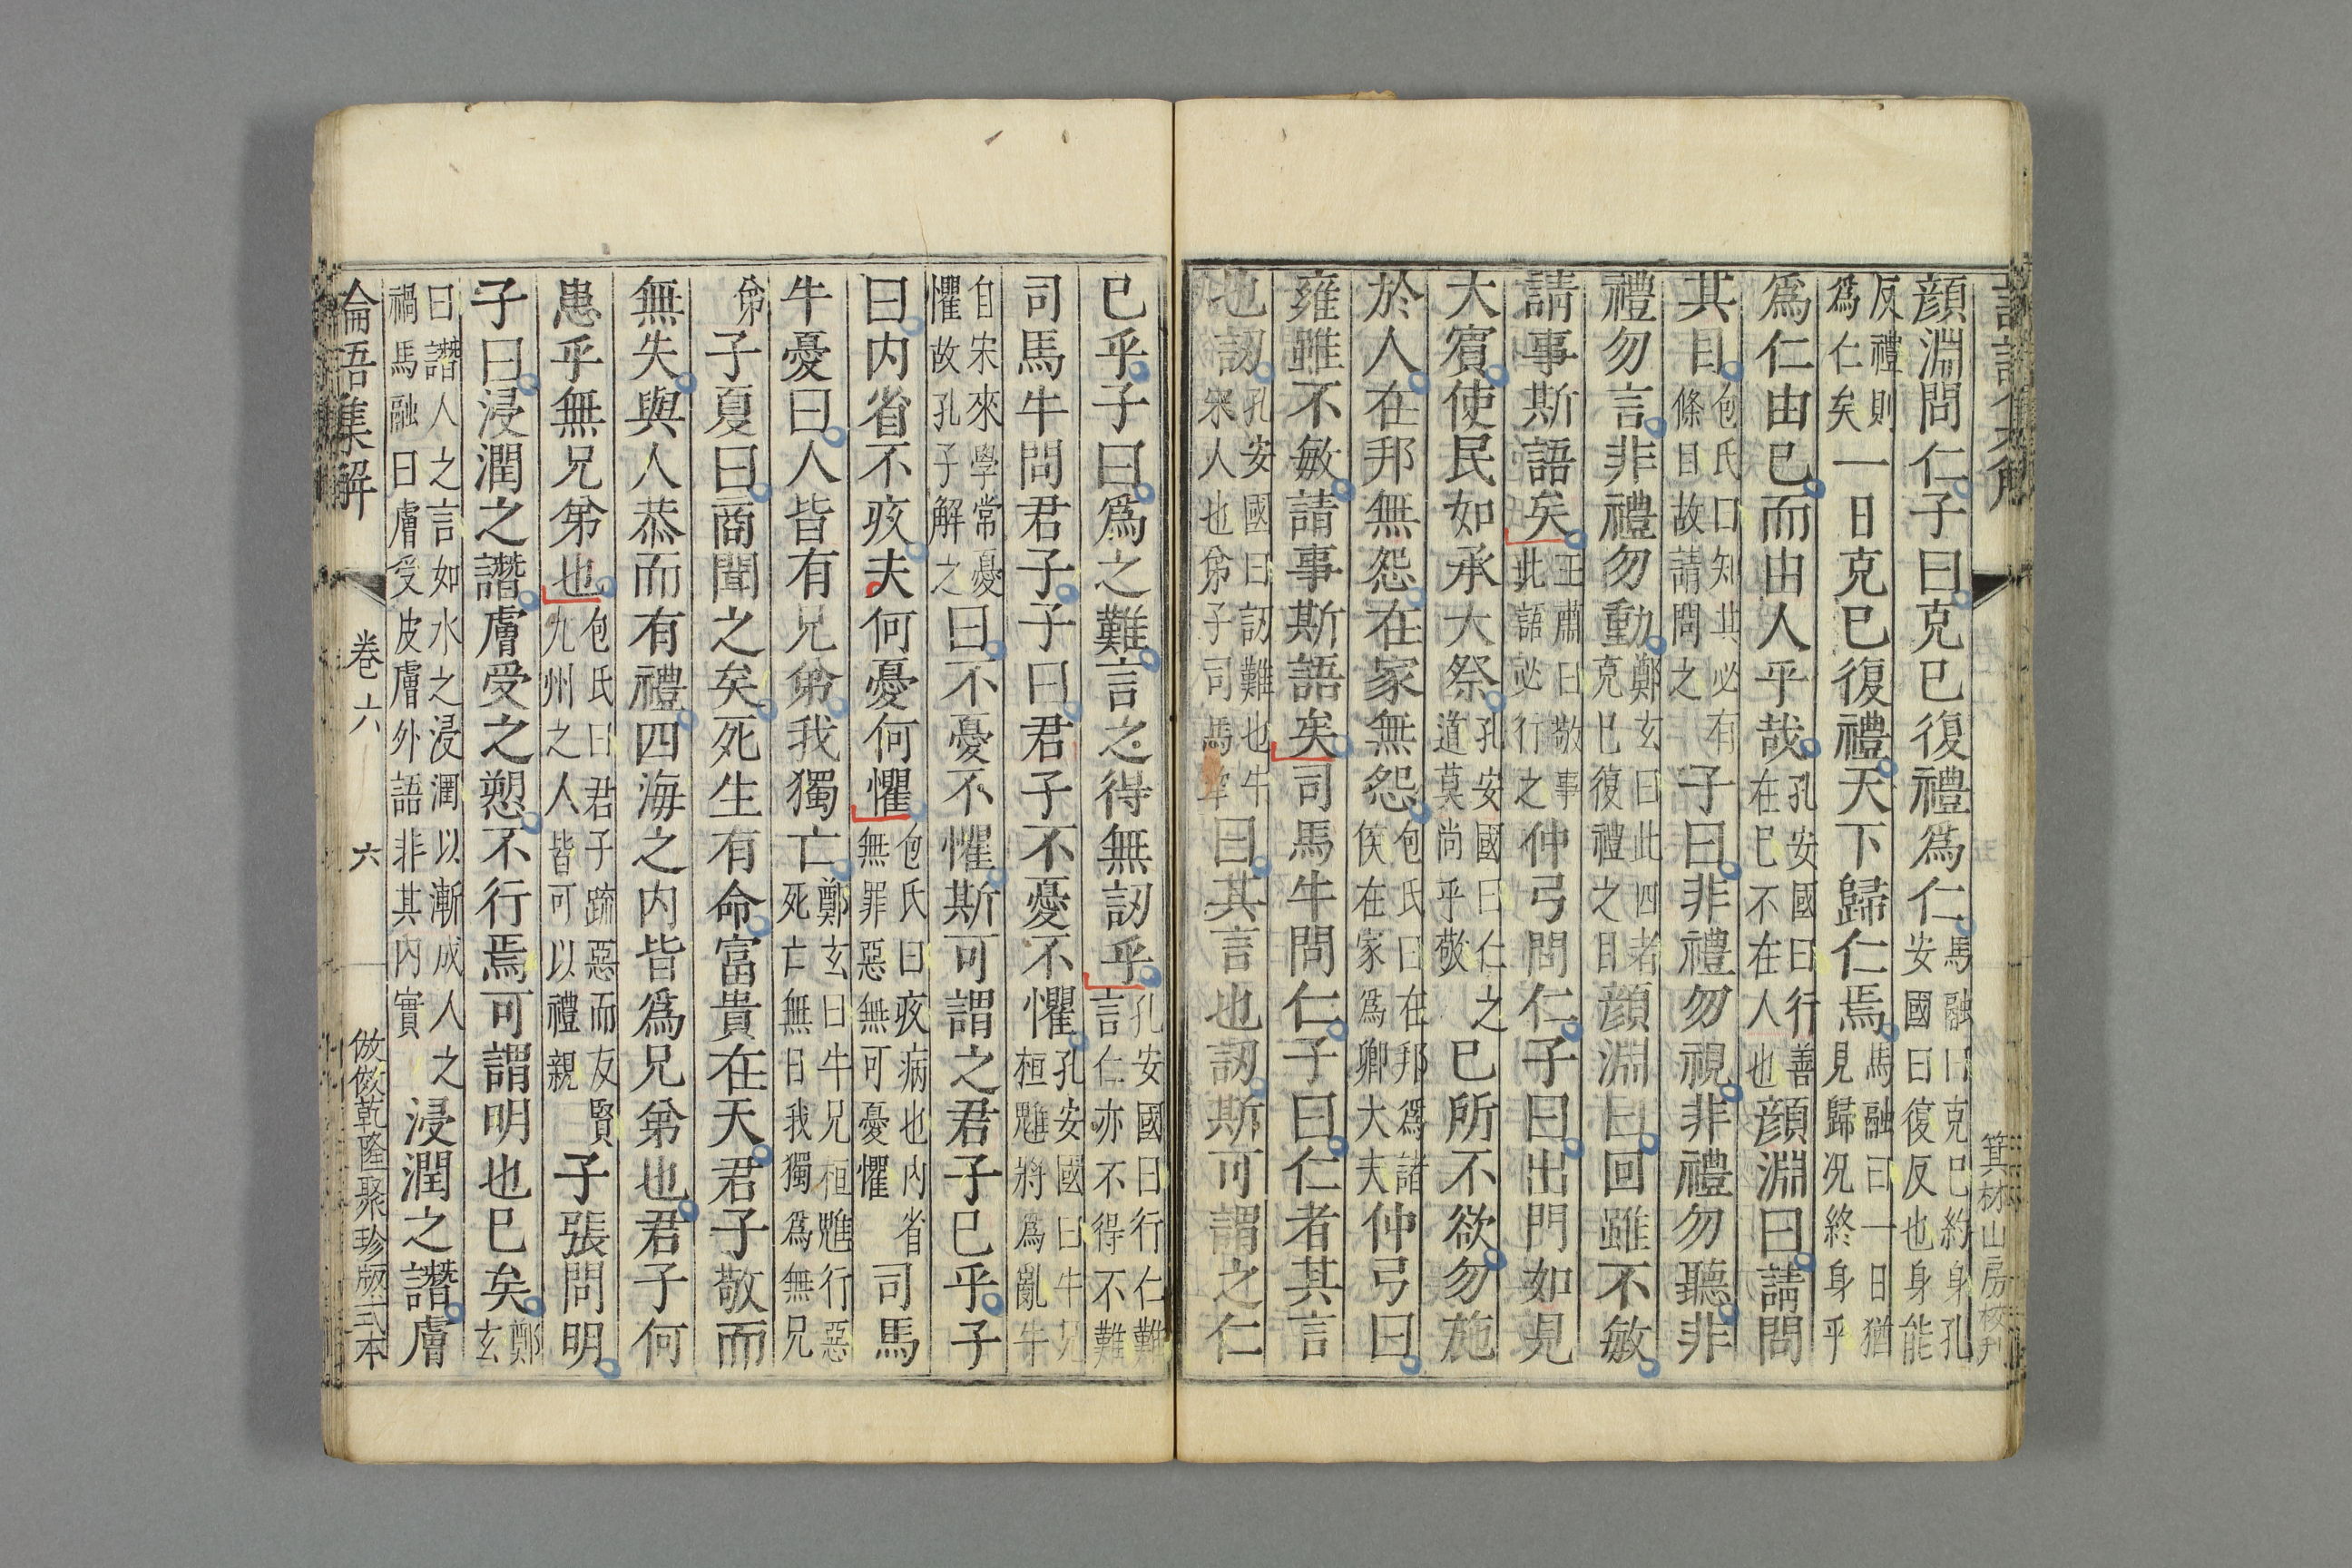 顔淵問仁子曰克己復禮爲仁馬融曰克己約身孔安國曰復反也身能
反禮則爲仁矣一日克己復禮天下歸仁焉馬融曰一日猶見歸況終身乎
爲仁由己而由人乎哉孔安國曰行善在己不在人也顔淵曰請問
其目包氏曰知其必有條目故請問之子曰非禮勿視非禮勿聽非
禮勿言非禮勿動鄭玄曰此四者克己復禮之目顔淵曰回雖不敏
請事斯語矣王肅曰敬事此語必行之仲弓問仁子曰出門如見
大賓使民如承大祭孔安國曰仁之道莫尚乎敬己所不欲勿施
於人在邦無怨在家無怨包氏曰在邦爲諸侯在家爲卿大夫仲弓曰
雍雖不敏請事斯語矣司馬牛問仁子曰仁者其言
也訒孔安國曰訒難也牛宋人也弟子司馬犂曰其言也訒斯可謂之仁
已乎子曰爲之難言之得無訒乎孔安國曰行仁難言仁亦不得不難
司馬牛問君子子曰君子不憂不懼孔安國曰牛兄桓魋將爲亂牛
自宋來學常憂懼故孔子解之曰不憂不懼斯可謂之君子已乎子
曰内省不疚夫何憂何懼包氏曰疚病也内省無罪惡無可憂懼司馬
牛憂曰人皆有兄弟我獨亡鄭玄曰牛兄桓魋行惡死亡無日我獨爲無兄
弟子夏曰商聞之矣死生有命富貴在天君子敬而
無失與人恭而有禮四海之内皆爲兄弟也君子何
患乎無兄弟也包氏曰君子疏惡而友賢九州之人皆可以禮親子張問明
子曰浸潤之譖膚受之愬不行焉可謂明也已矣鄭玄
曰譖人之言如水之浸潤以漸成人之禍馬融曰膚受皮膚外語非其内實浸潤之譖膚
論語集解 卷六 六 倣倣乾隆聚珍版式本
箕材山房校刊